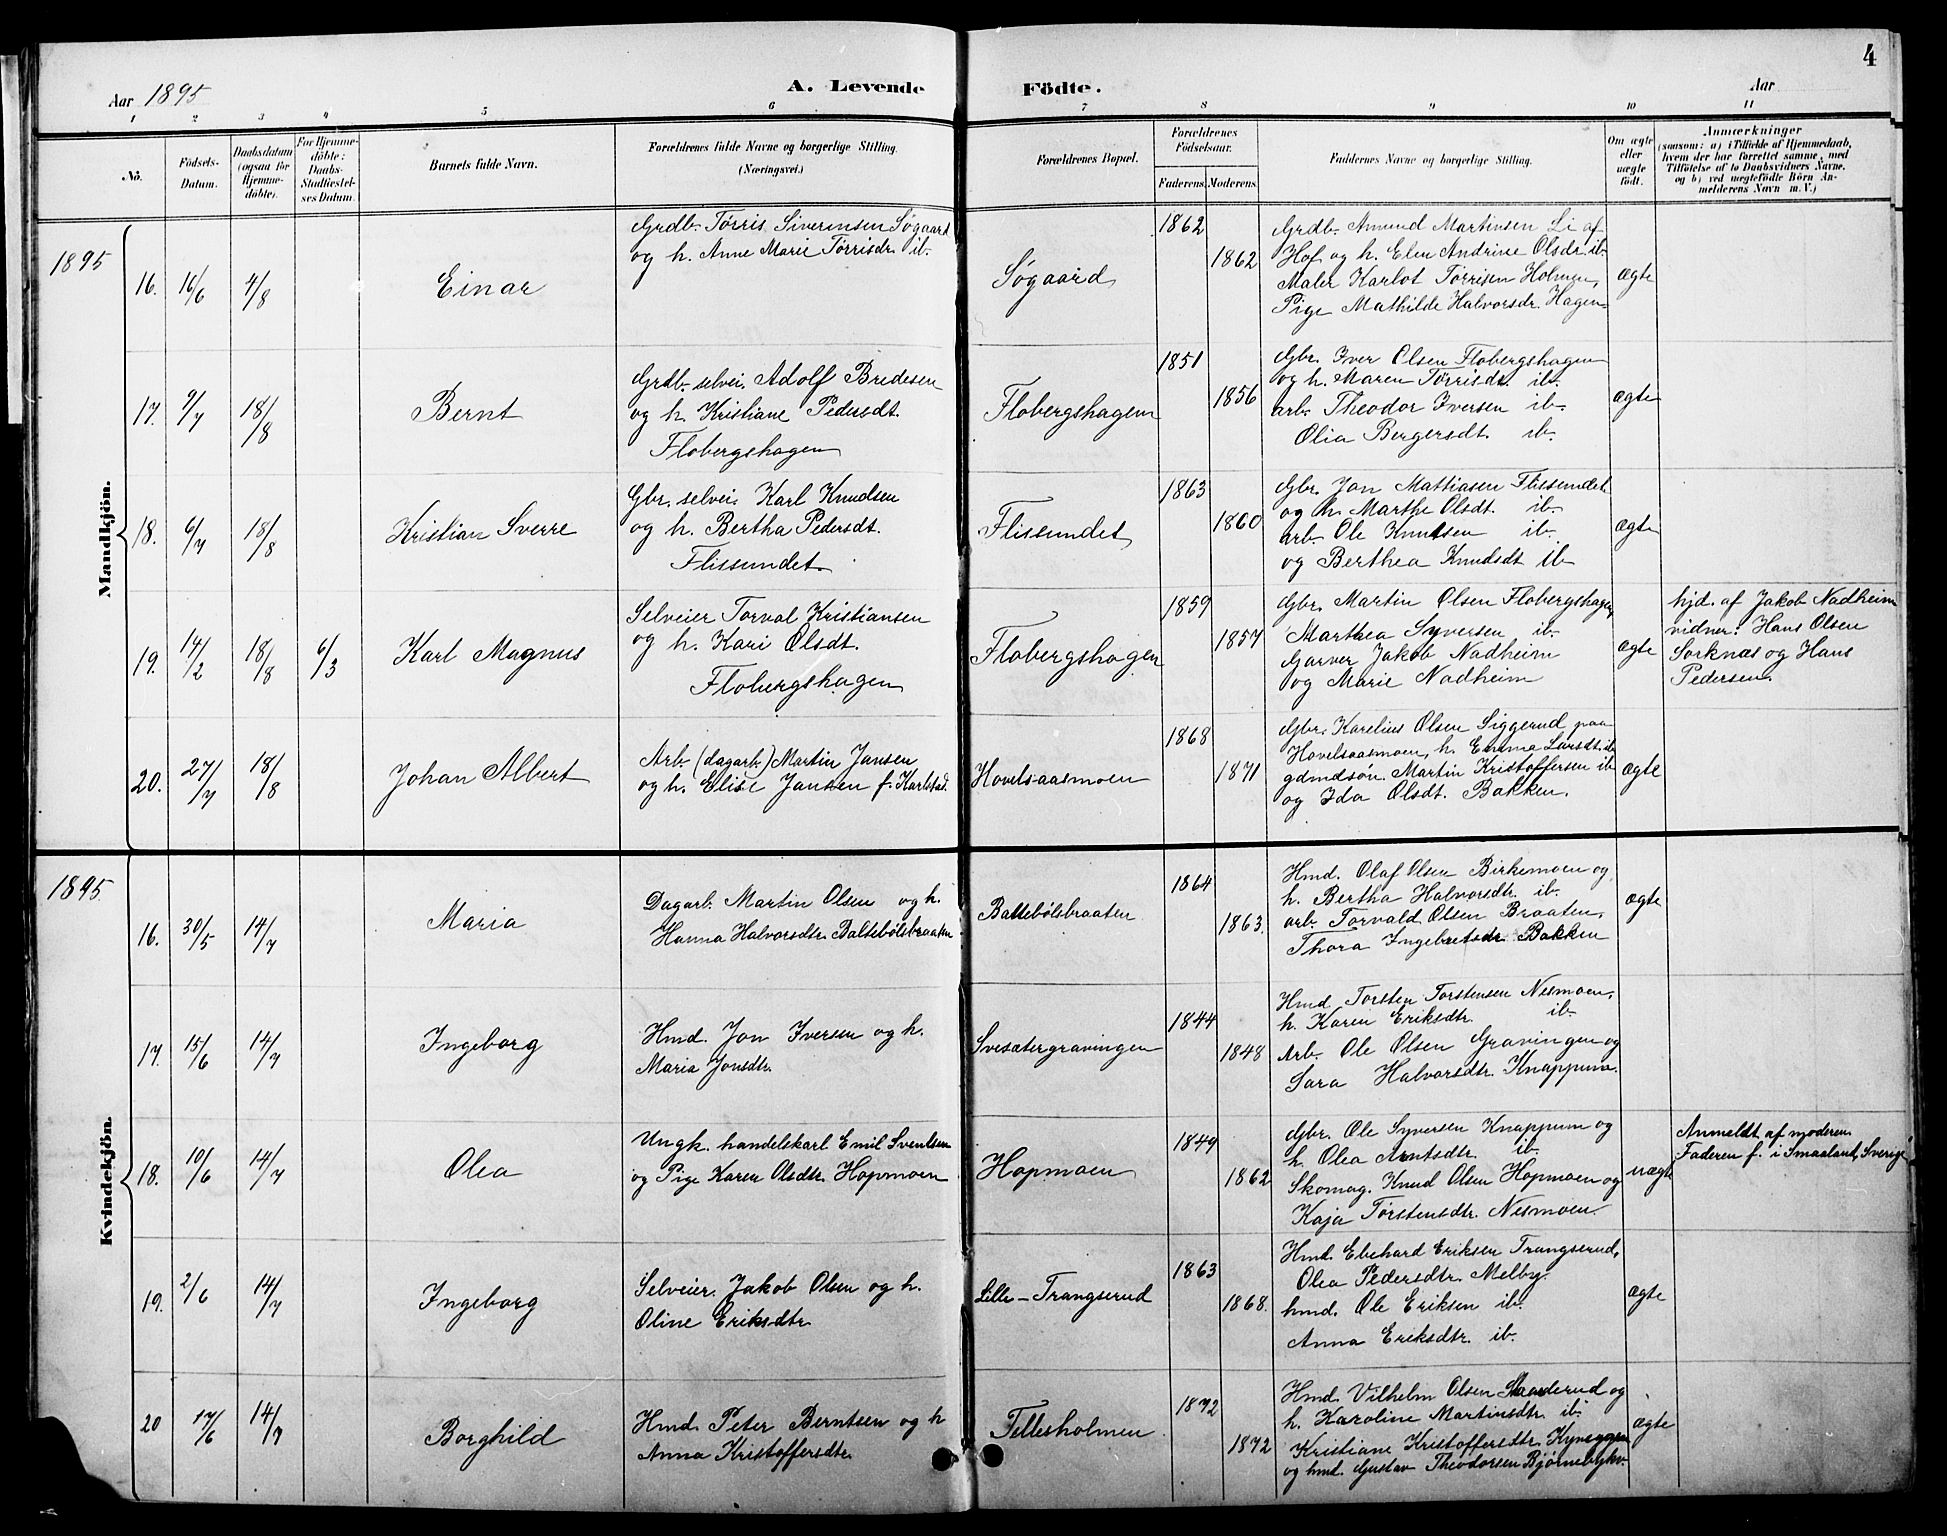 4
Aar 1895
A. Levende Födte.
Aar
1 2 3 4 5 6 7 8 9 10 11
No.
Födsels-
Datum.
Daabsdatum
(ogsaa for
Hjemme-
döbte).
For Hjemme-
döbte:
Daabs-
Stadfæstel-
ses Datum.
Barnets fulde Navn.
Forældrenes fulde Navne og borgerlige Stilling.
(Næringsvei.)
Forældrenes Bopæl.
Forældrenes
Födselsaar.
Faderens. Moderens.
Faddernes Navne og borgerlige Stilling.
Om ægte
eller
uægte
födt.
Anmærkninger
(saasom: a) i Tilfælde af Hjemmedaab,
hvem der har forrettet samme, med
Tilföielse af to Daabsvidners Navne,
og b) ved uægtefödte Börn An-
melderens Navn m. V.)
Mandkjön.
1895
16. 16/6 4/8
Einar
Grdb. Tørris Siverinsen Søgaard
og h. Anne Marie Tørrisdr. ib.
Søgaard
1862
1862
Grdb. Amund Martinsen Li af
Hof og h. Elen Andrine Olsdr. ib.
Maler Karlot Tørrisen Holmen,
Pige Mathilde Halvorsdr. Hagen
ægte
17. 9/7 18/8
Bernt
Grdb. selvei. Adolf Bredesen
og h. Kristiane Pedersdt.
Flobergshagen
Flobergshagen
1851
1856
Gbr. Iver Olsen Flobergshagen
og h. Maren Tørrisdt. ib.
arb. Theodor Iversen ib.
Olia Bergersdt. ib.
ægte
18. 6/7 18/8
Kristian Sverre
Gbr. selvei. Karl Knudsen
og h. Bertha Pedersdt.
Flissundet.
Flissundet
1863
1860
Gbr. Jon Mattiasen Flissundet
og h. Marthe Olsdt. ib.
arb. Ole Knutsen ib.
og Berthea Knudsdt ib
ægte
19. 14/2 18/8 6/3
Karl Magnus
Selveier Torval Kristiansen
og h. Kari Olsdt.
Flobergshagen
Flobergshagen
1859
1857
Gbr. Martin Olsen Flobergshagen
Marthea Syversen ib.
Garver Jakob Nadheim
og Marie Nadheim
ægte
hjd. af Jakob Nadheim
vidner: Hans Olsen
Sorknæs og Hans
Pedersen.
20. 27/7 18/8
Johan Albert
Arb. (dagarb.) Martin Jansen
og h. Elise Jansen f. Karlstad.
Hovelsaasmoen
1868
1871
Gbr. Karelius Olsen Siggerud paa
Hovelsaasmoen, h. Emma Larsdt. ib
gdmdsøn. Martin Kristoffersen ib
og Ida Olsdt. Bakken.
ægte
Kvindekjön.
1895
16. 30/5 14/7
Maria
Dagarb. Martin Olsen og h.
Hanna Halvorsdtr. Baltebølsbraaten
Baltebølsbraaten
1864
1863.
Hmd. Olaf Olsen Birkemoen og
h. Bertha Halvorsdtr. ib.
arb. Torvald Olsen Braaten,
Thora Ingebretsdr. Bakken
ægte
17. 15/6 14/7
Ingeborg
Hmd. Jon Iversen og h.
Maria Jonsdtr.
Svesætergravingen
1844
1848
Hmd. Torsten Torstensen Nesmoen,
h. Karen Eriksdtr. ib.
Arb. Ole Olsen Gravingen og
Sara Halvorsdtr. Knappum.
18. 10/6 14/7
Olea
Ungk. handelskarl Emil Sventsen
og Pige Karen Olsdtr. Hopmoen
Hopmoen
1849
1862
Gbr. Ole Syversen Knappum og
h. Olea Arntsdtr. ib.
Skomag. Knud Olsen Hopmoen og
Kaja Torstensdtr. Nesmoen.
uægte
Anmeldt af moderen.
Faderen f. i Smaaland, Sverige
19. 2/6 14/7
Ingeborg
Selveier. Jakob Olsen og h.
Oline Eriksdtr.
Lille-Trangserud
1863
1868.
Hmd. Ebehard Eriksen Trangserud,
Olea Pedersdtr. Melby.
hmd. Ole Eriksen ib.
Anna Eriksdtr. ib.
ægte
20 17/6 14/7
Borghild
Hmd. Peter Berntsen og h
Anna Kristoffersdtr.
Tellesholmen
1872
1872
Hmd. Vilhelm Olsen og
h. Karoline Martinsdtr. ib.
Kristiane Kristoffersdtr.
og hmd. Gustav Theodorsen
ægte